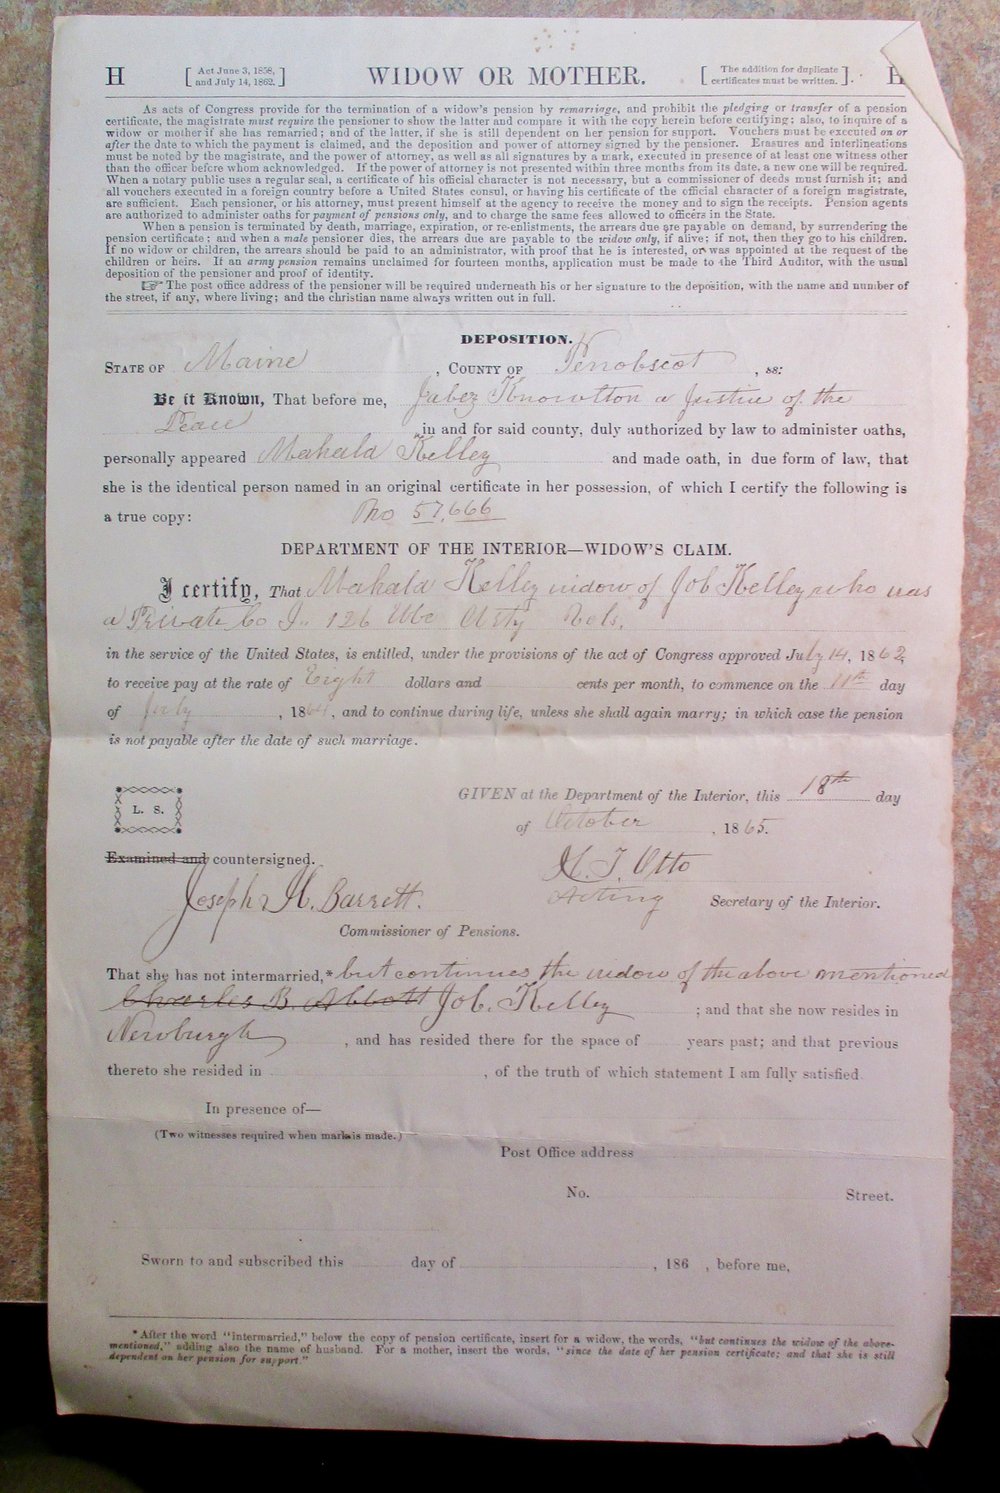 H [ Act June 3, 1858, and July 14, 1862. ] WIDOW OR MOTHER. [ The addition for duplicate certificates must be written. ]
As acts of Congress provide for the termination of a widow's pension by remarriage, and prohibit the pledging or transfer of a pension
certificate, the magistrate must require the pensioner to show the latter and compare it with the copy herein before certifying; also, to inquire of a
widow or mother if she has remarried; and of the latter, if she is still dependent on her pension for support. Vouchers must be executed on or
after the date to which the payment is claimed, and the deposition and power of attorney signed by the pensioner. Erasures and interlineations
must be noted by the magistrate, and the power of attorney, as well as all signatures by a mark, executed in presence of at least one witness other
than the officer before whom acknowledged. If the power of attorney is not presented within three months from its date, a new one will be required.
When a notary public uses a regular seal, a certificate of his official character is not necessary, but a commissioner of deeds must furnish it; and
all vouchers executed in a foreign country before a United States consul, or having his certificate of the official character of a foreign magistrate,
are sufficient. Each pensioner, or his attorney, must present himself at the agency to receive the money and to sign the receipts. Pension agents
are authorized to administer oaths for payment of pensions only, and to charge the same fees allowed to officers in the State.
When a pension is terminated by death, marriage, expiration, or re-enlistments, the arrears due are payable on demand, by surrendering the
pension certificate; and when a male pensioner dies, the arrears due are payable to the widow only, if alive; if not, then they go to his children.
If no widow or children, the arrears should be paid to an administrator, with proof that he is interested, or was appointed at the request of the
children or heirs. If an army pension remains unclaimed for fourteen months, application must be made to the Third Auditor, with the usual
deposition of the pensioner and proof of identity.
☞ The post office address of the pensioner will be required underneath his or her signature to the deposition, with the name and number of
the street, if any, where living; and the christian name always written out in full.
DEPOSITION.
STATE OF Maine, COUNTY OF Penobscot, ss:
Be it Known, That before me, Jabez Knowlton a Justice of the
Peace in and for said county, duly authorized by law to administer oaths,
personally appeared Mahala Kelley and made oath, in due form of law, that
she is the identical person named in an original certificate in her possession, of which I certify the following is
a true copy: No 57,666
DEPARTMENT OF THE INTERIOR—WIDOW'S CLAIM.
I certify, That Mahala Kelley widow of Job Kelley who was
a Private Co I. 126 Arty Vols.
in the service of the United States, is entitled, under the provisions of the act of Congress approved July 14, 1862,
to receive pay at the rate of Eight dollars and cents per month, to commence on the 11th day
of July, 1864, and to continue during life, unless she shall again marry; in which case the pension
is not payable after the date of such marriage.
L. S.
GIVEN at the Department of the Interior, this 18th day
of October, 1865.
Examined and countersigned.
W. T. Otto
Joseph H. Barrett. Acting Secretary of the Interior.
Commissioner of Pensions.
That she has not intermarried,* but continues the widow of the above mentioned
Charles B. Abbott Job. Kelley; and that she now resides in
Newburgh, and has resided there for the space of years past; and that previous
thereto she resided in , of the truth of which statement I am fully satisfied.
In presence of—
(Two witnesses required when mark is made.)
Post Office address
No. Street.
Sworn to and subscribed this day of , 186 , before me,
*After the word "intermarried," below the copy of pension certificate, insert for a widow, the words, "but continues the widow of the above-
mentioned," adding also the name of husband. For a mother, insert the words, "since the date of her pension certificate; and that she is still
dependent on her pension for support."